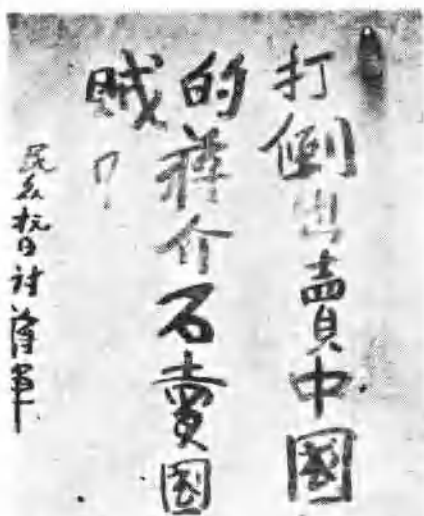 打倒出賣中國
的蔣介石賣國
賊！
民众抗日討蔣軍